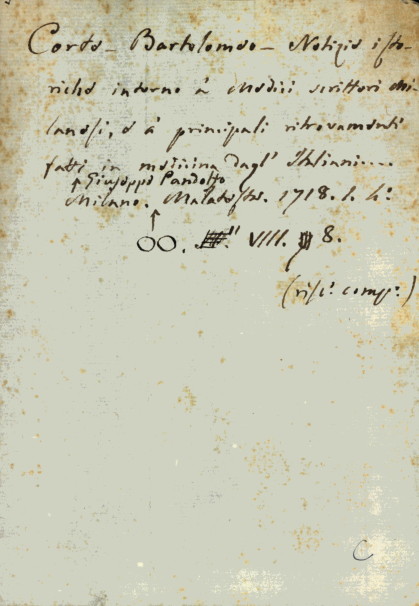 Corte - Bartolomeo - Notizie isto-
riche intorno à Medici scrittori Mi-
lanesi, e à principali ritrovamenti
fatti in medicina dagl' Italiani....
Giuseppe Pandolfo
Milano. Malatesta. 1718. 1. 4.°
OO. VIII. 8.
(
C